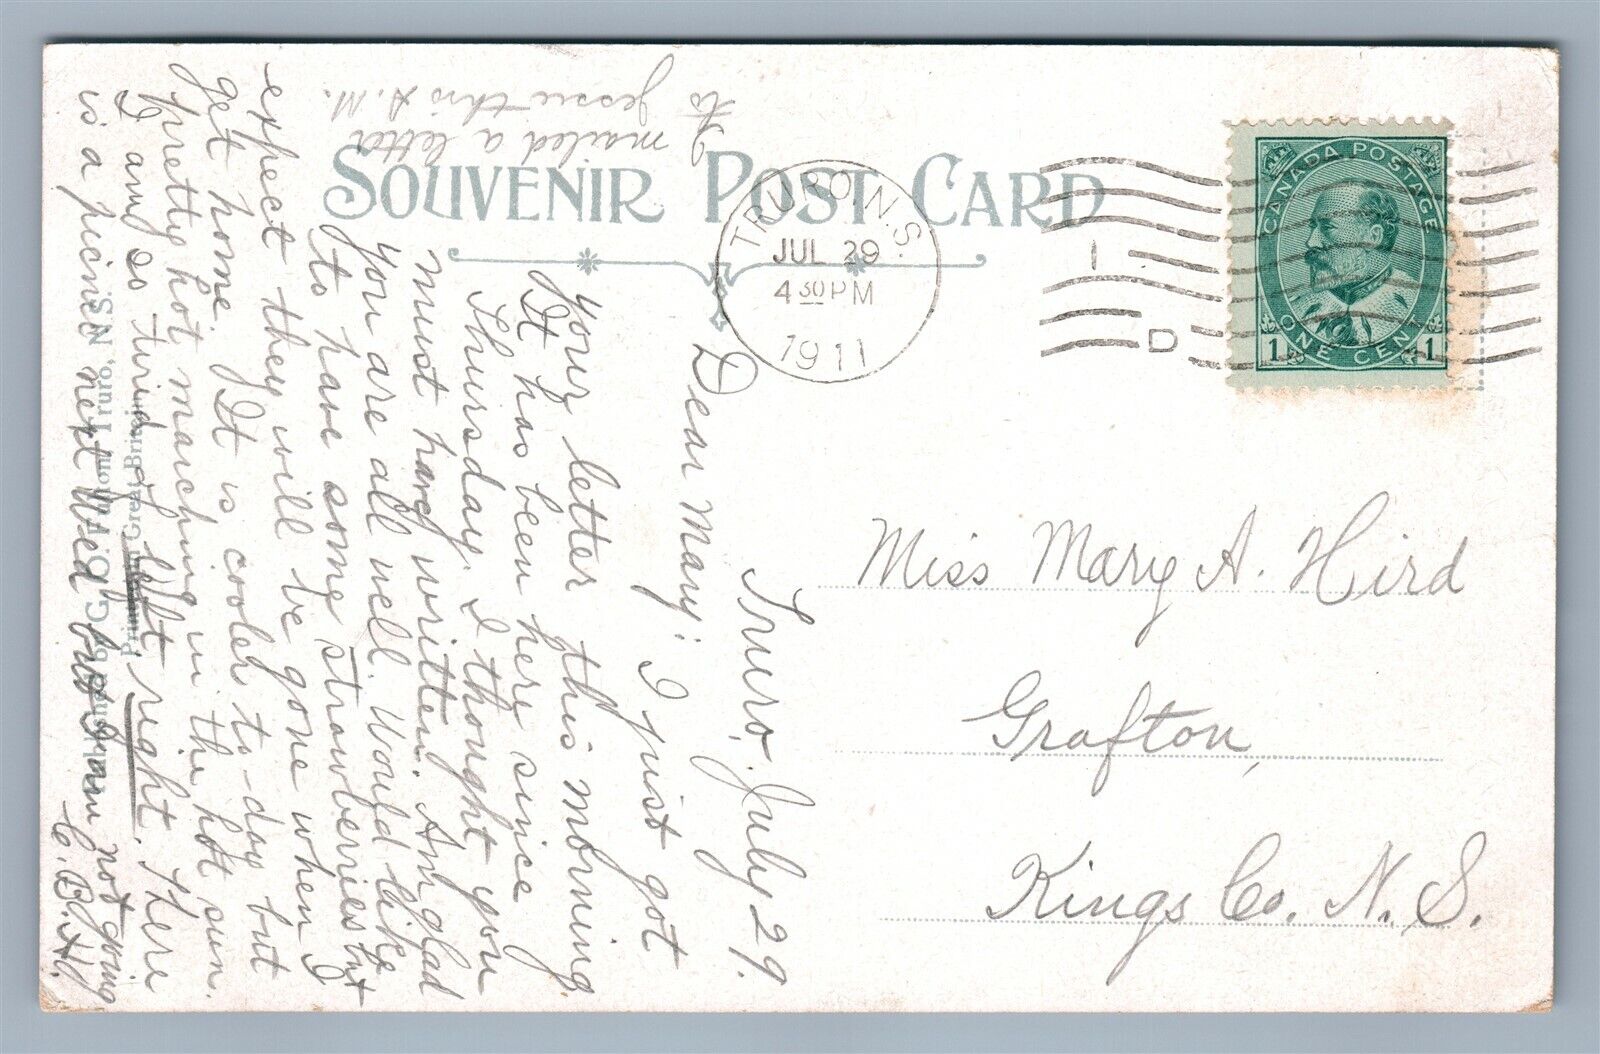 SOUVENIR POST CARD
TRURO, N.S.
JUL 29
4 30 PM
1911
1
D
CANADA POSTAGE
ONE CENT
1 1
Miss Mary A. Hird
Grafton,
Kings Co. N. S.
Truro, July 29.
Dear Mary: I just got
your letter this morning.
It has been here since
Thursday. I thought you
must have written. Am glad
you are all well. Would like
to have some strawberries but
expect they will be gone when I
get home. It is cooler to-day but
pretty hot marching in the hot sun.
I am so tired of left right. There
is a picnic next Wed but I am not going
C. B. H.
I mailed a letter
to Jessie this A.M.
Published by G. O. Fulton, Truro, N. S.
Printed in Great Britain